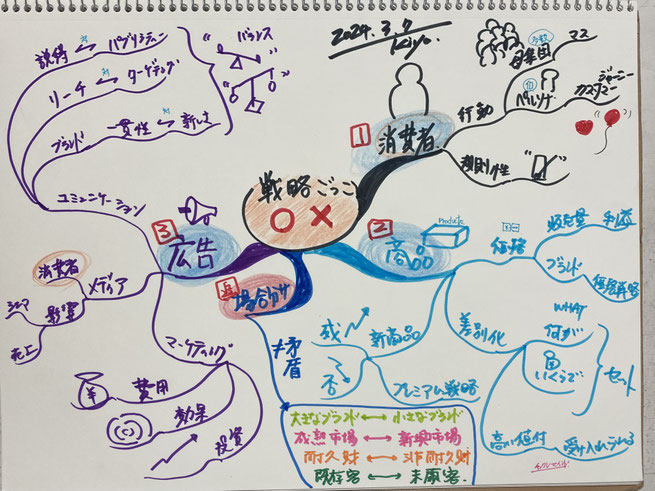 2024.3.7
Kiyo.
戦略ごっこ
1
消費者
行動
母集団
マス
ペルソナ
カスタマー
ジャーニー
規則性
2
商品
Products
価格
販売量
利益
ブランド
価格戦略
差別化
WHAT
何が
いくらで
セット
高い値付
受け入れられる
新商品
成
否
プレミアム戦略
3
広告
コミュニケーション
説得
パブリシティ
リーチ
ターゲティング
ブランド
一貫性
新しさ
バランス
メディア
消費者
影響
シェア
売上
マーケティング
費用
効果
投資
場合分け
≠矛盾
大きなブランド ↔ 小さなブランド
成熟市場 ↔ 新興市場
耐久財 ↔ 非耐久財
既存客 ↔ 未顧客